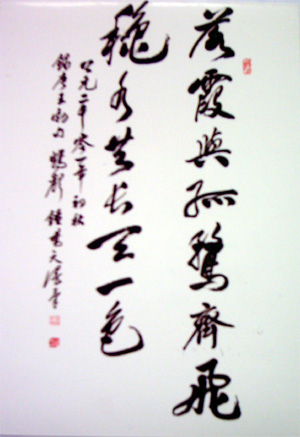 落霞與孤鶩齊飛
穐水共長天一色
公元二千零一年初秋
錄唐王勃句